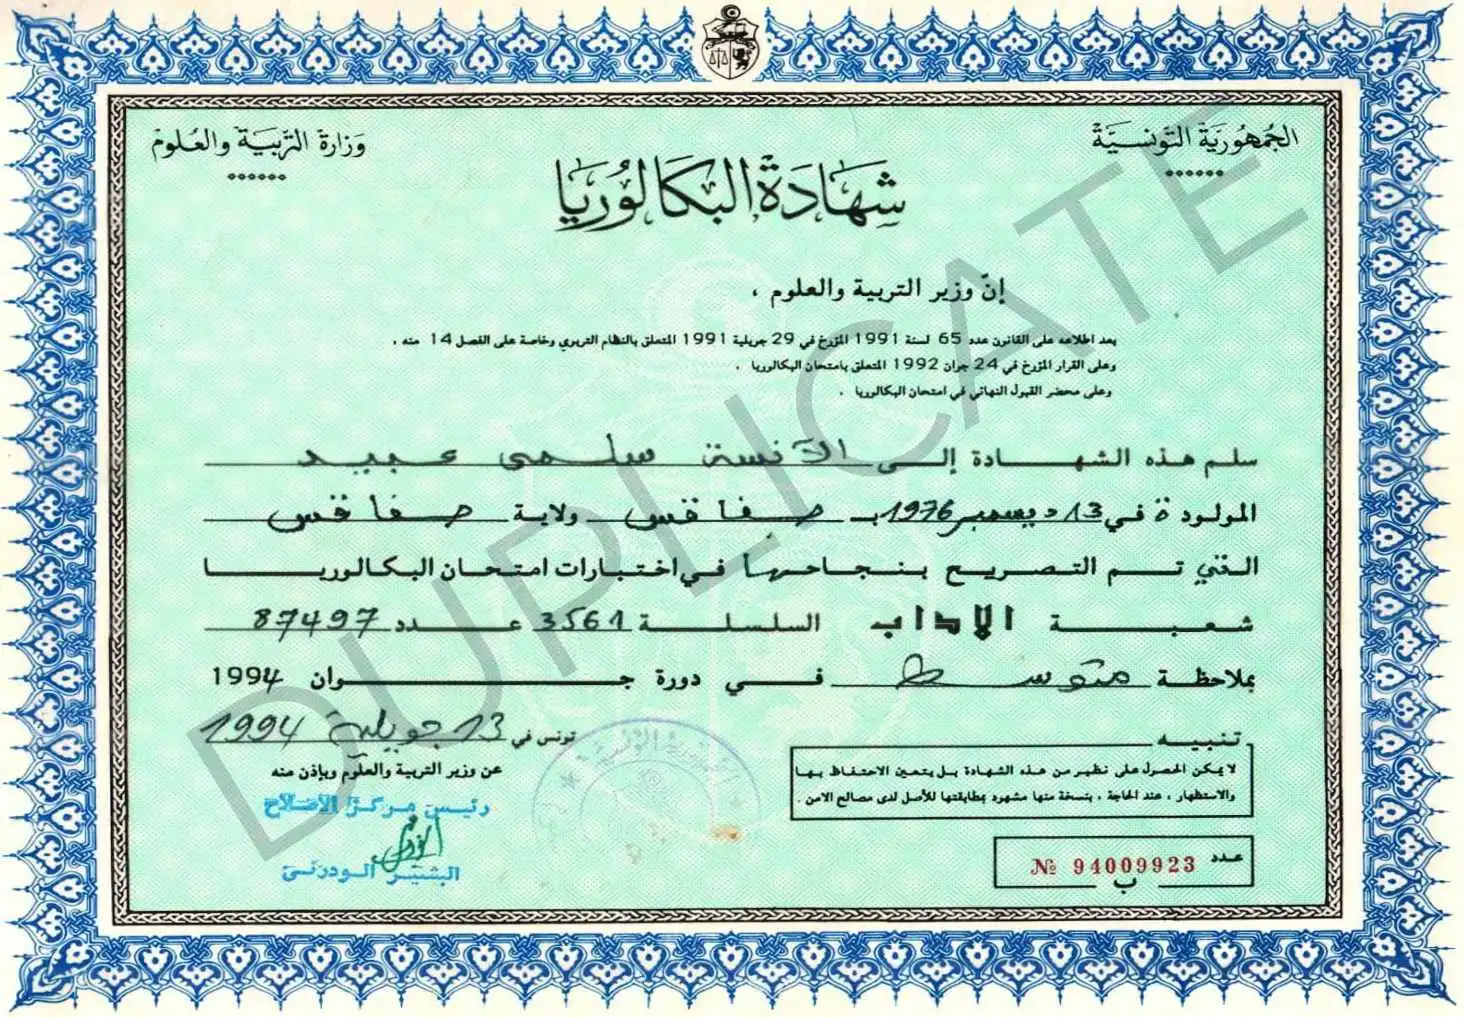 الجمهورية التونسية
وزارة التربية والعلوم
شهادة البكالوريا
إنّ وزير التربية والعلوم ،
بعد اطلاعه على القانون عدد 65 لسنة 1991 المؤرخ في 29 جويلية 1991 المتعلق بالنظام التربوي وخاصة على الفصل 14 منه ،
وعلى القرار المؤرخ في 24 جوان 1992 المتعلق بامتحان البكالوريا ،
وعلى محضر القبول النهائي في امتحان البكالوريا ،
سلم هذه الشهادة إلى الآنسة سلمى عبيد
المولودة في 13 ديسمبر 1976 بـ صفاقس ولاية صفاقس
التي تم التصريح بنجاحها في اختبارات امتحان البكالوريا
شعبة الآداب السلسلة 3561 عدد 87497
بملاحظة متوسط في دورة جوان 1994
تونس في 13 جويلية 1994
عن وزير التربية والعلوم وبإذن منه
رئيس مركز الإصلاح
البشير الودرني
تنبيه
لا يمكن الحصول على نظير من هذه الشهادة بل يتعين الاحتفاظ بها
والاستظهار ، عند الحاجة ، بنسخة منها مشهود بمطابقتها للأصل لدى مصالح الامن .
عدد № 94009923
ب
DUPLICATE